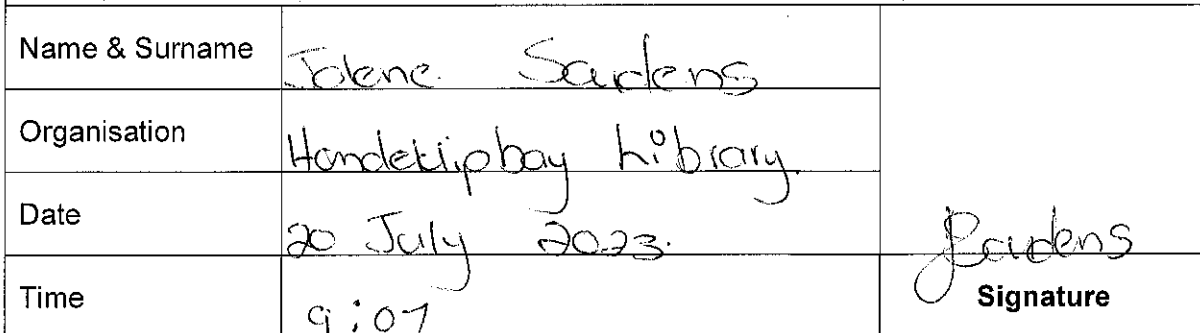 Name & Surname Jolene Saidens
Organisation Hondeklipbay Library.
Date 20 July 2023.
Time 9:07
Signature